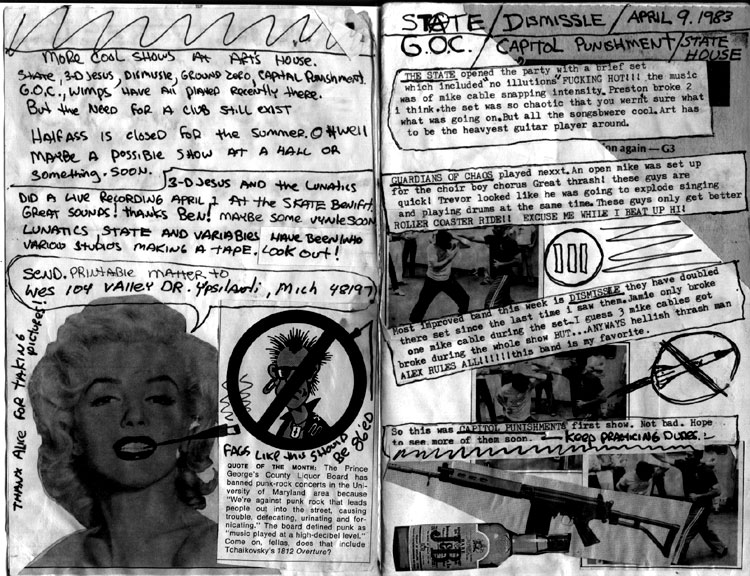 MORE COOL SHOWS AT ART'S HOUSE.
STATE, 3-D JESUS, DISMISSLE, GROUND ZERO, CAPITAL PUNISHMENT
G.O.C., WIMPS HAVE All PlAYED RECENTLY THERE.
BUT THE NEED FOR A CLUB STILL EXIST
HALFASS IS CLOSED FOR THE SUMMER.
MAYBE A POSSIBLE SHOW AT A HALL OR
SOMETHING. SOON.
3-D JESUS AND THE LUNATICS
DID A LIVE RECORDING APRIL 2 AT THE SKATE BENIFIT.
GREAT SOUNDS! THANKS BEN! MAYBE SOME VYNLE SOON
LUNATICS, STATE AND VARIABLES HAVE BEEN INTO
VARIOUS STUDIOS MAKING A TAPE. LOOK OUT!
SEND. PRINTABLE MATTER TO
WES 104 VALLEY DR. YPSILANTI, MICH 48197
THANX ALKIE FOR TAKING
PICTURES!!
FAGS LIKE THIS SHOULD
BE 86'ED
QUOTE OF THE MONTH: The Prince
George's County Liquor Board has
banned punk-rock concerts in the Uni-
versity of Maryland area because
"We're against punk rock that leads
people out into the street, causing
trouble, defecating, urinating and for-
nicating." The board defined punk as
"music played at a high-decibel level."
Come on, fellas, does that include
Tchaikovsky's 1812 Overture?
STATE / DISMISSLE / APRIL 9. 1983
G.O.C. / CAPITOL PUNISHMENT / STATE
HOUSE
THE STATE opened the party with a brief set
which included "no illutions" FUCKING HOT!!! the music
was of mike cable snapping intensity. Preston broke 2
i think. the set was so chaotic that you wernt sure what
what was going on. But all the songs were cool. Art has
to be the heavyest guitar player around.
on again — G3
GUARDIANS OF CHAOS played nexxt. An open mike was set up
for the choir boy chorus Great thrash! these guys are
quick! Trevor looked like he was going to explode singing
and playing drums at the same time. These guys only get better
ROLLER COASTER RIDE!! EXCUSE ME WHILE I BEAT UP HI!
Most improved band this week is DISMISSLE they have doubled
there set since the last time i saw them. Jamie only broke
one mike cable during the set-I guess 3 mike cables got
broke during the whole show BUT...ANYWAYS hellish thrash man
ALEX RULES ALL!!!!!!this band is my favorite.
So this was CAPITOL PUNISHMENTs first show. Not bad. Hope
to see more of them soon. KEEP PRAKTICING DUDES.